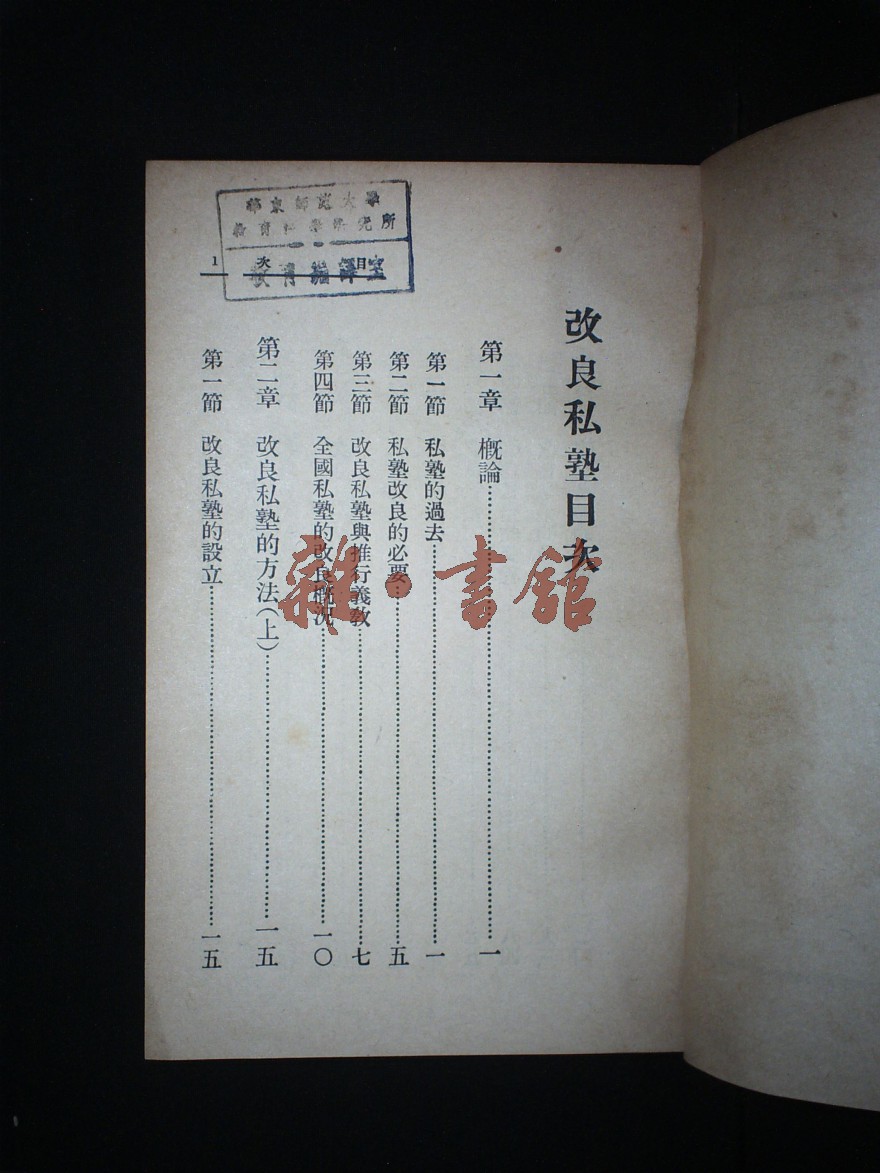 改良私塾目次
第一章 概論…………一
第一節 私塾的過去…………一
第二節 私塾改良的必要…………五
第三節 改良私塾與推行義教…………七
第四節 全國私塾的改良概況…………一〇
第二章 改良私塾的方法(上)…………一五
第一節 改良私塾的設立…………一五
目次
1
華東師范大學
教育科學研究所
教育編譯室
雜·書館